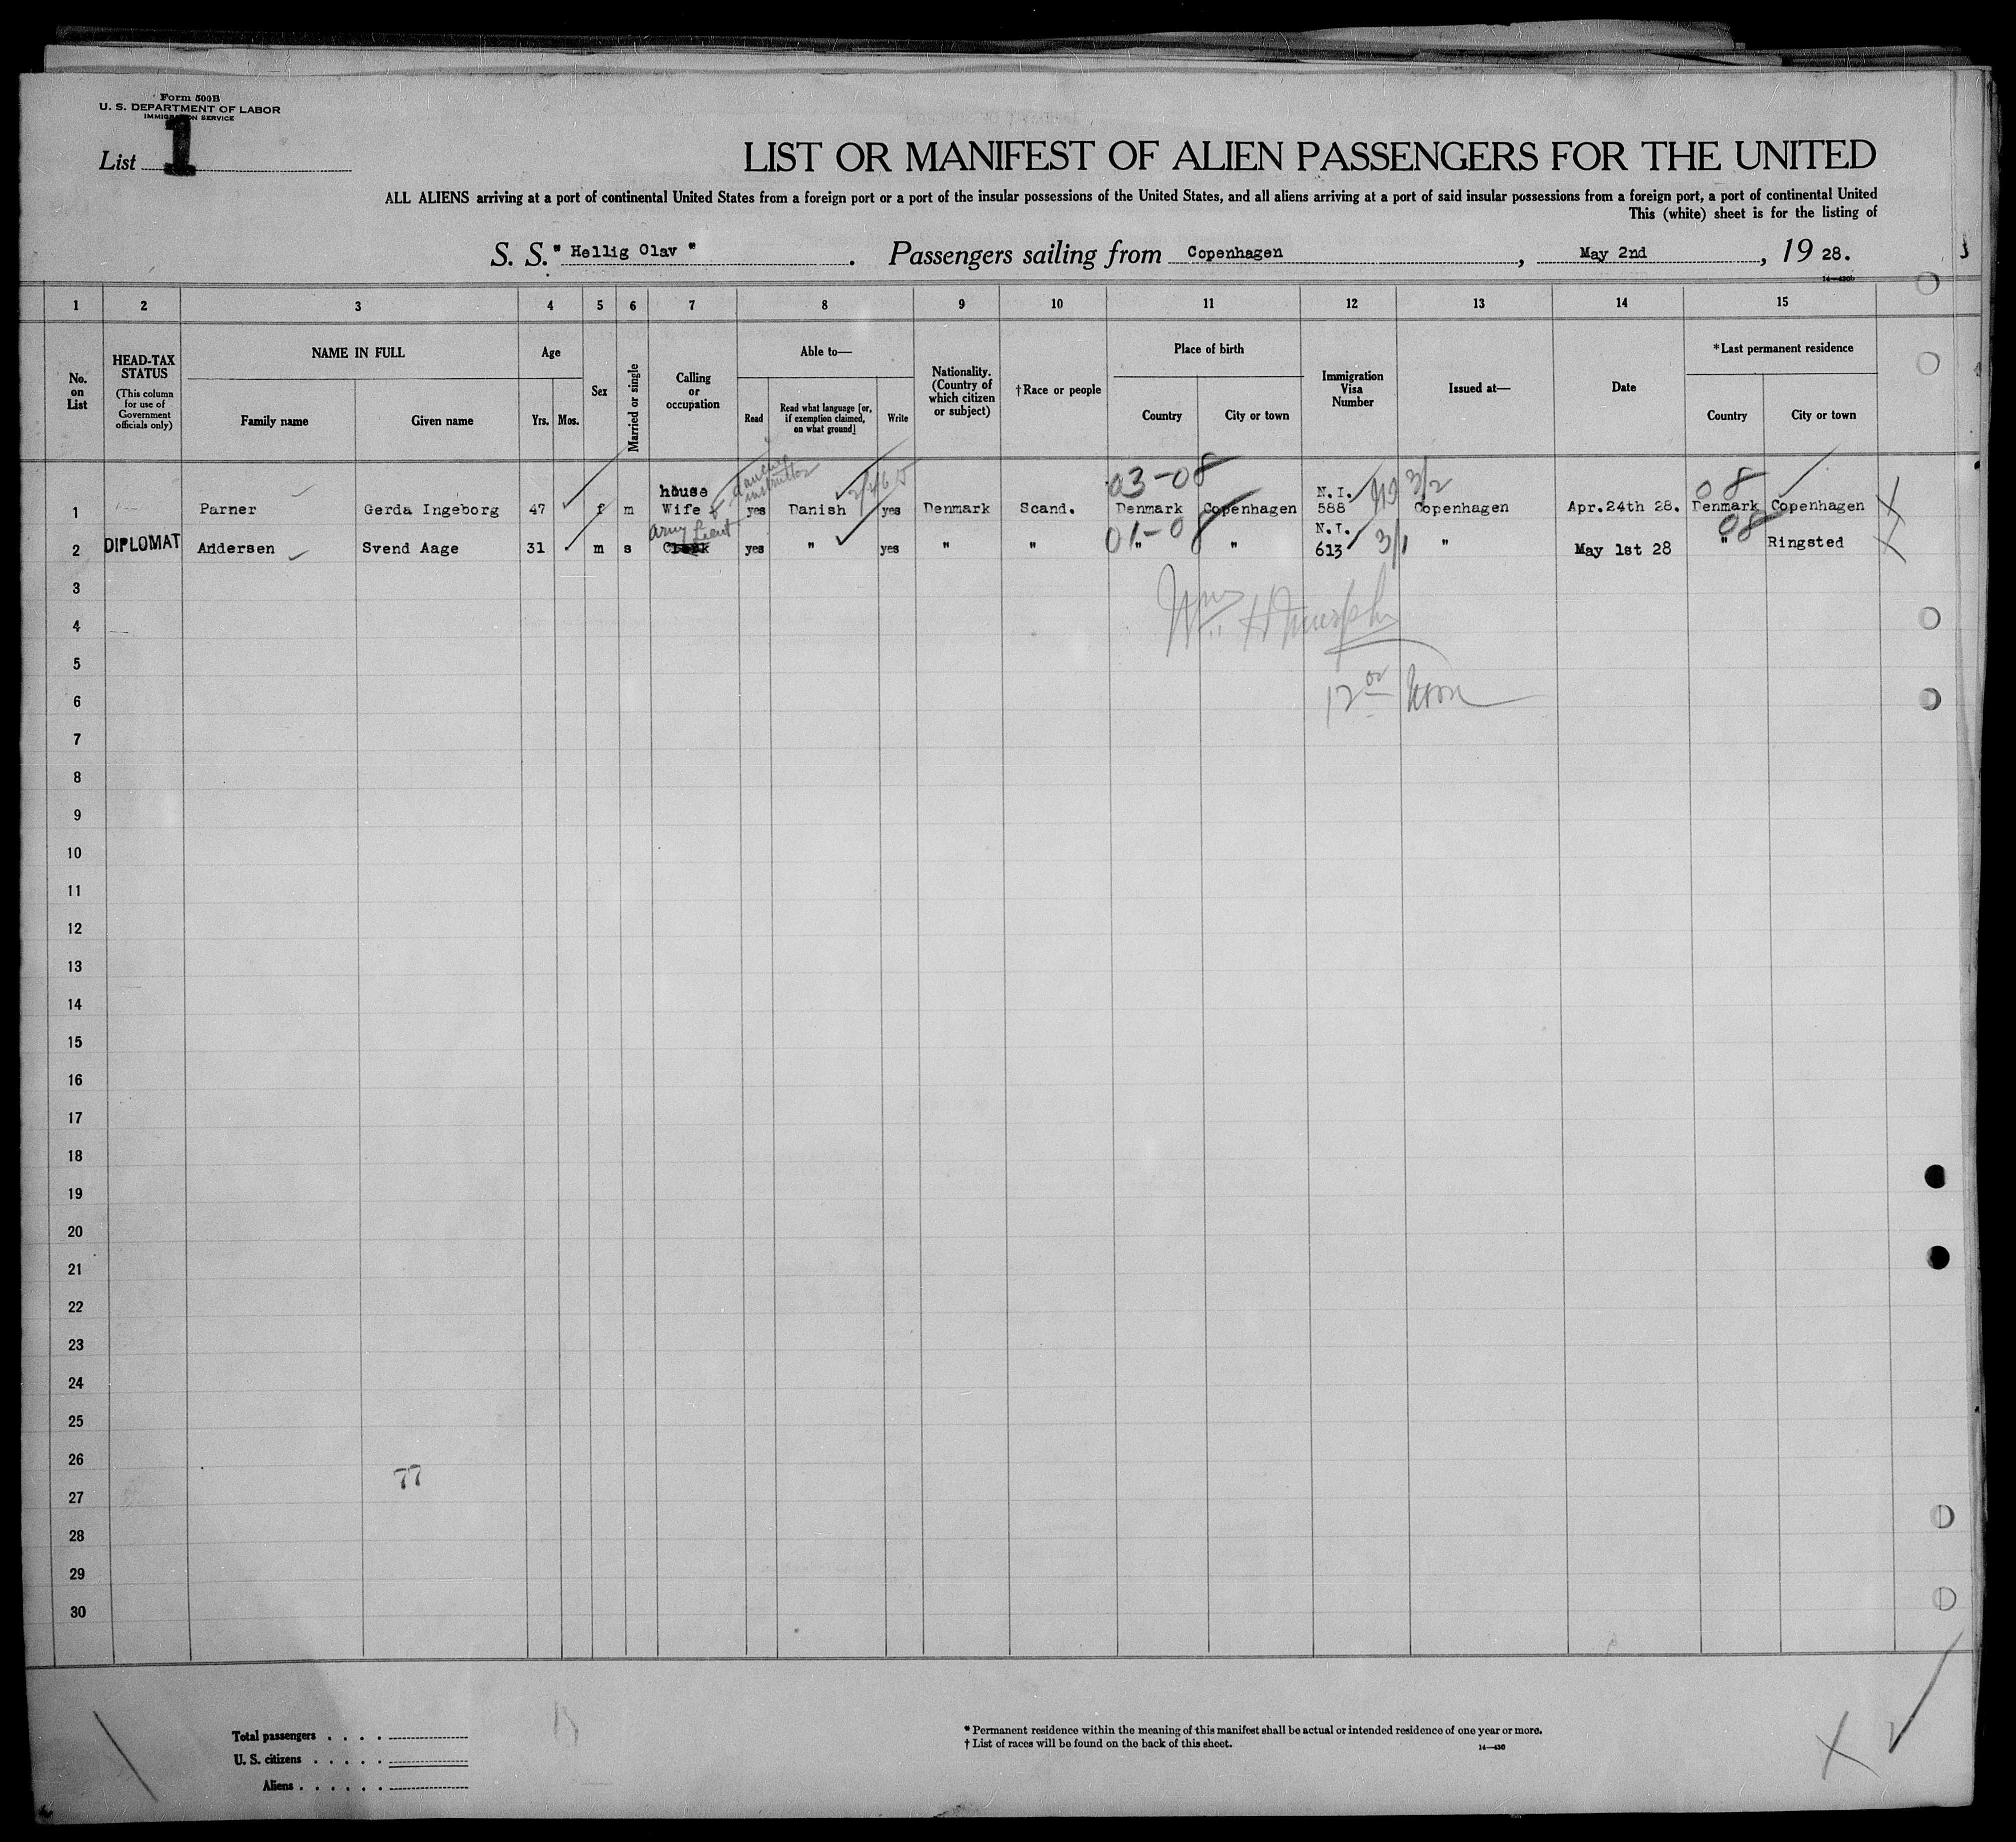 Form 500B
U. S. DEPARTMENT OF LABOR
IMMIGRATION SERVICE
List 1
LIST OR MANIFEST OF ALIEN PASSENGERS FOR THE UNITED
ALL ALIENS arriving at a port of continental United States from a foreign port or a port of the insular possessions of the United States, and all aliens arriving at a port of said insular possessions from a foreign port, a port of continental United
This (white) sheet is for the listing of
S. S. " Hellig Olav " . Passengers sailing from Copenhagen , May 2nd , 19 28.
14—430b
1 2 3 4 5 6 7 8 9 10 11 12 13 14 15
No. on List
HEAD-TAX STATUS
(This column for use of Government officials only)
NAME IN FULL
Family name Given name
Age
Yrs. Mos.
Sex
Married or single
Calling or occupation
Able to—
Read
Read what language [or, if exemption claimed, on what ground]
Write
Nationality. (Country of which citizen or subject)
†Race or people
Place of birth
Country City or town
Immigration Visa Number
Issued at—
Date
*Last permanent residence
Country City or town
dancing instructor
03-08 3/2 08
house N. I.
1 Parner Gerda Ingeborg 47 f m Wife yes Danish yes Denmark Scand. Denmark Copenhagen 588 Copenhagen Apr.24th 28. Denmark Copenhagen
Army Lieut 01-08 N.I. 08
2 DIPLOMAT Andersen Svend Aage 31 m s Clerk yes " yes " " " " 613 3/1 " May 1st 28 " Ringsted
3
4 Wm H Murphy
5
6 12 00 Noon
7
8
9
10
11
12
13
14
15
16
17
18
19
20
21
22
23
24
25
26
77
27
28
29
30
Total passengers . . . .
U. S. citizens . . . . .
Aliens . . . . . .
* Permanent residence within the meaning of this manifest shall be actual or intended residence of one year or more.
† List of races will be found on the back of this sheet.
14—430